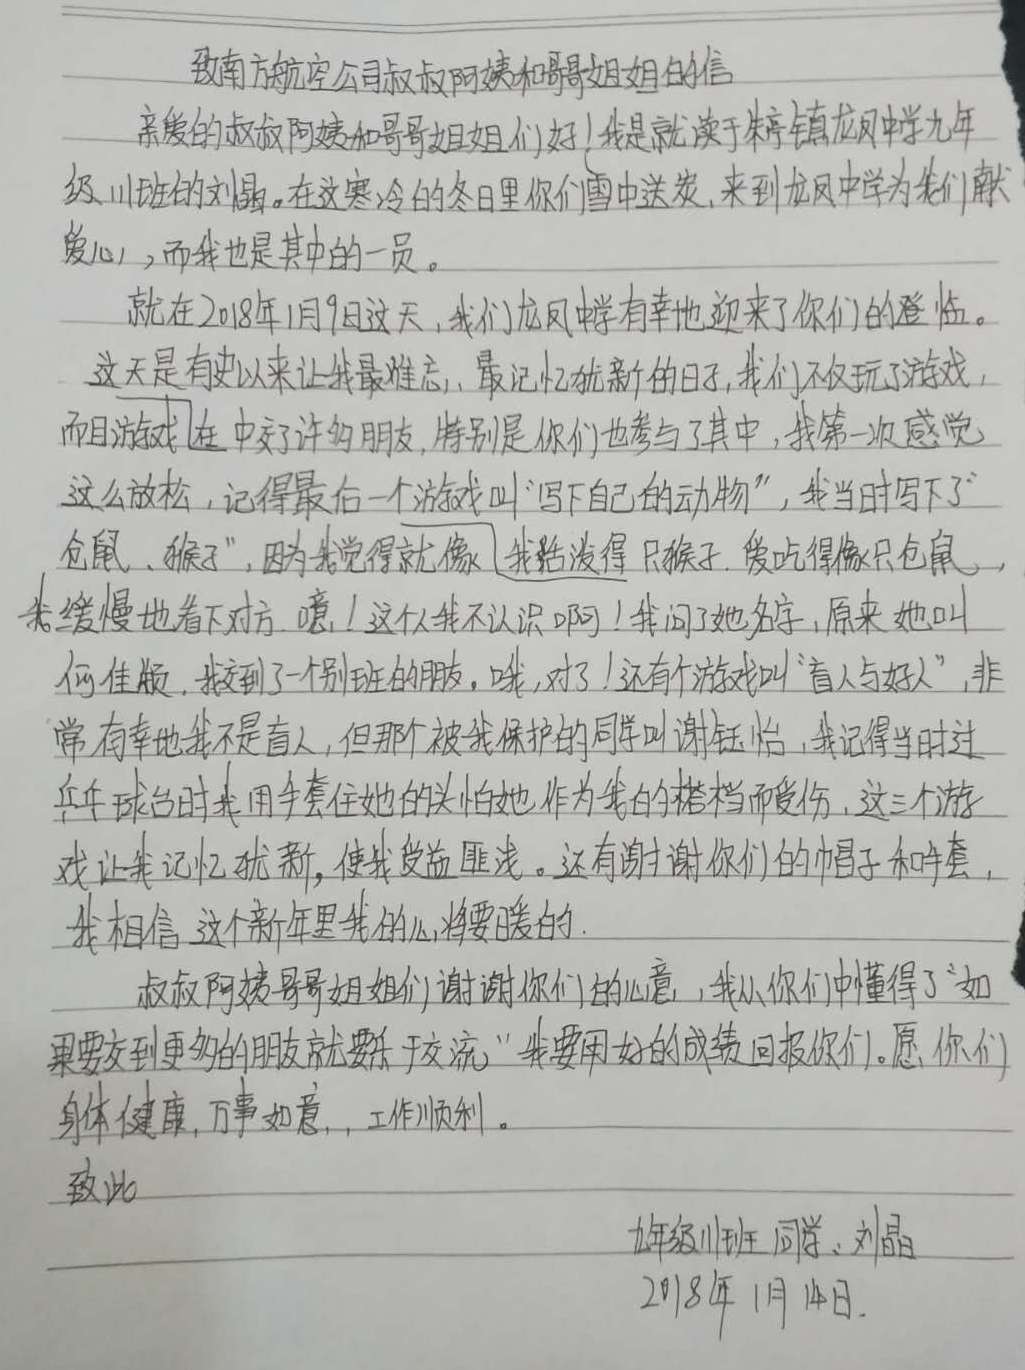 致南方航空公司叔叔阿姨和哥哥姐姐的信
亲爱的叔叔阿姨和哥哥姐姐们好！我是就读于朱亭镇龙凤中学九年
级川班的刘晶。在这寒冷的冬日里你们雪中送炭，来到龙凤中学为我们献
爱心，而我也是其中的一员。
就在2018年1月9日这天，我们龙凤中学有幸地迎来了你们的登临。
这天是有史以来让我最难忘，最记忆犹新的日子，我们不仅玩了游戏，
而且游戏在中交了许多朋友，特别是你们也参与了其中，我第一次感觉
这么放松，记得最后一个游戏叫“写下自己的动物”，我当时写下了“
仓鼠、猴子”，因为我觉得就像我活泼得只猴子．爱吃得像只仓鼠，
我缓慢地看下对方．噫！这个人我不认识啊！我问了她名字，原来她叫
何佳颀．我交到了一个别班的朋友。哦，对了！还有个游戏叫“盲人与好人”，非
常有幸地我不是盲人，但那个被我保护的同学叫谢钰怡，我记得当时过
乒乓球台时我用手套住她的头怕她作为我的搭档而受伤．这三个游
戏让我记忆犹新，使我受益匪浅。还有谢谢你们的帽子和手套，
我相信这个新年里我的心将要暖的．
叔叔阿姨哥哥姐姐们谢谢你们的心意，我从你们中懂得了“如
果要交到更多的朋友就要乐于交流”我要用好的成绩回报你们。愿你们
身体健康，万事如意，，工作顺利。
致此
九年级川班同学、刘晶
2018年1月14日．